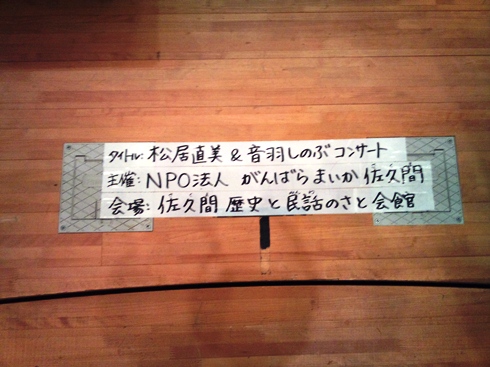 タイトル: 松居直美 & 音羽しのぶ コンサート
主催: NPO法人 がんばらまいか 佐久間
会場: 佐久間 歴史と民話のさと会館